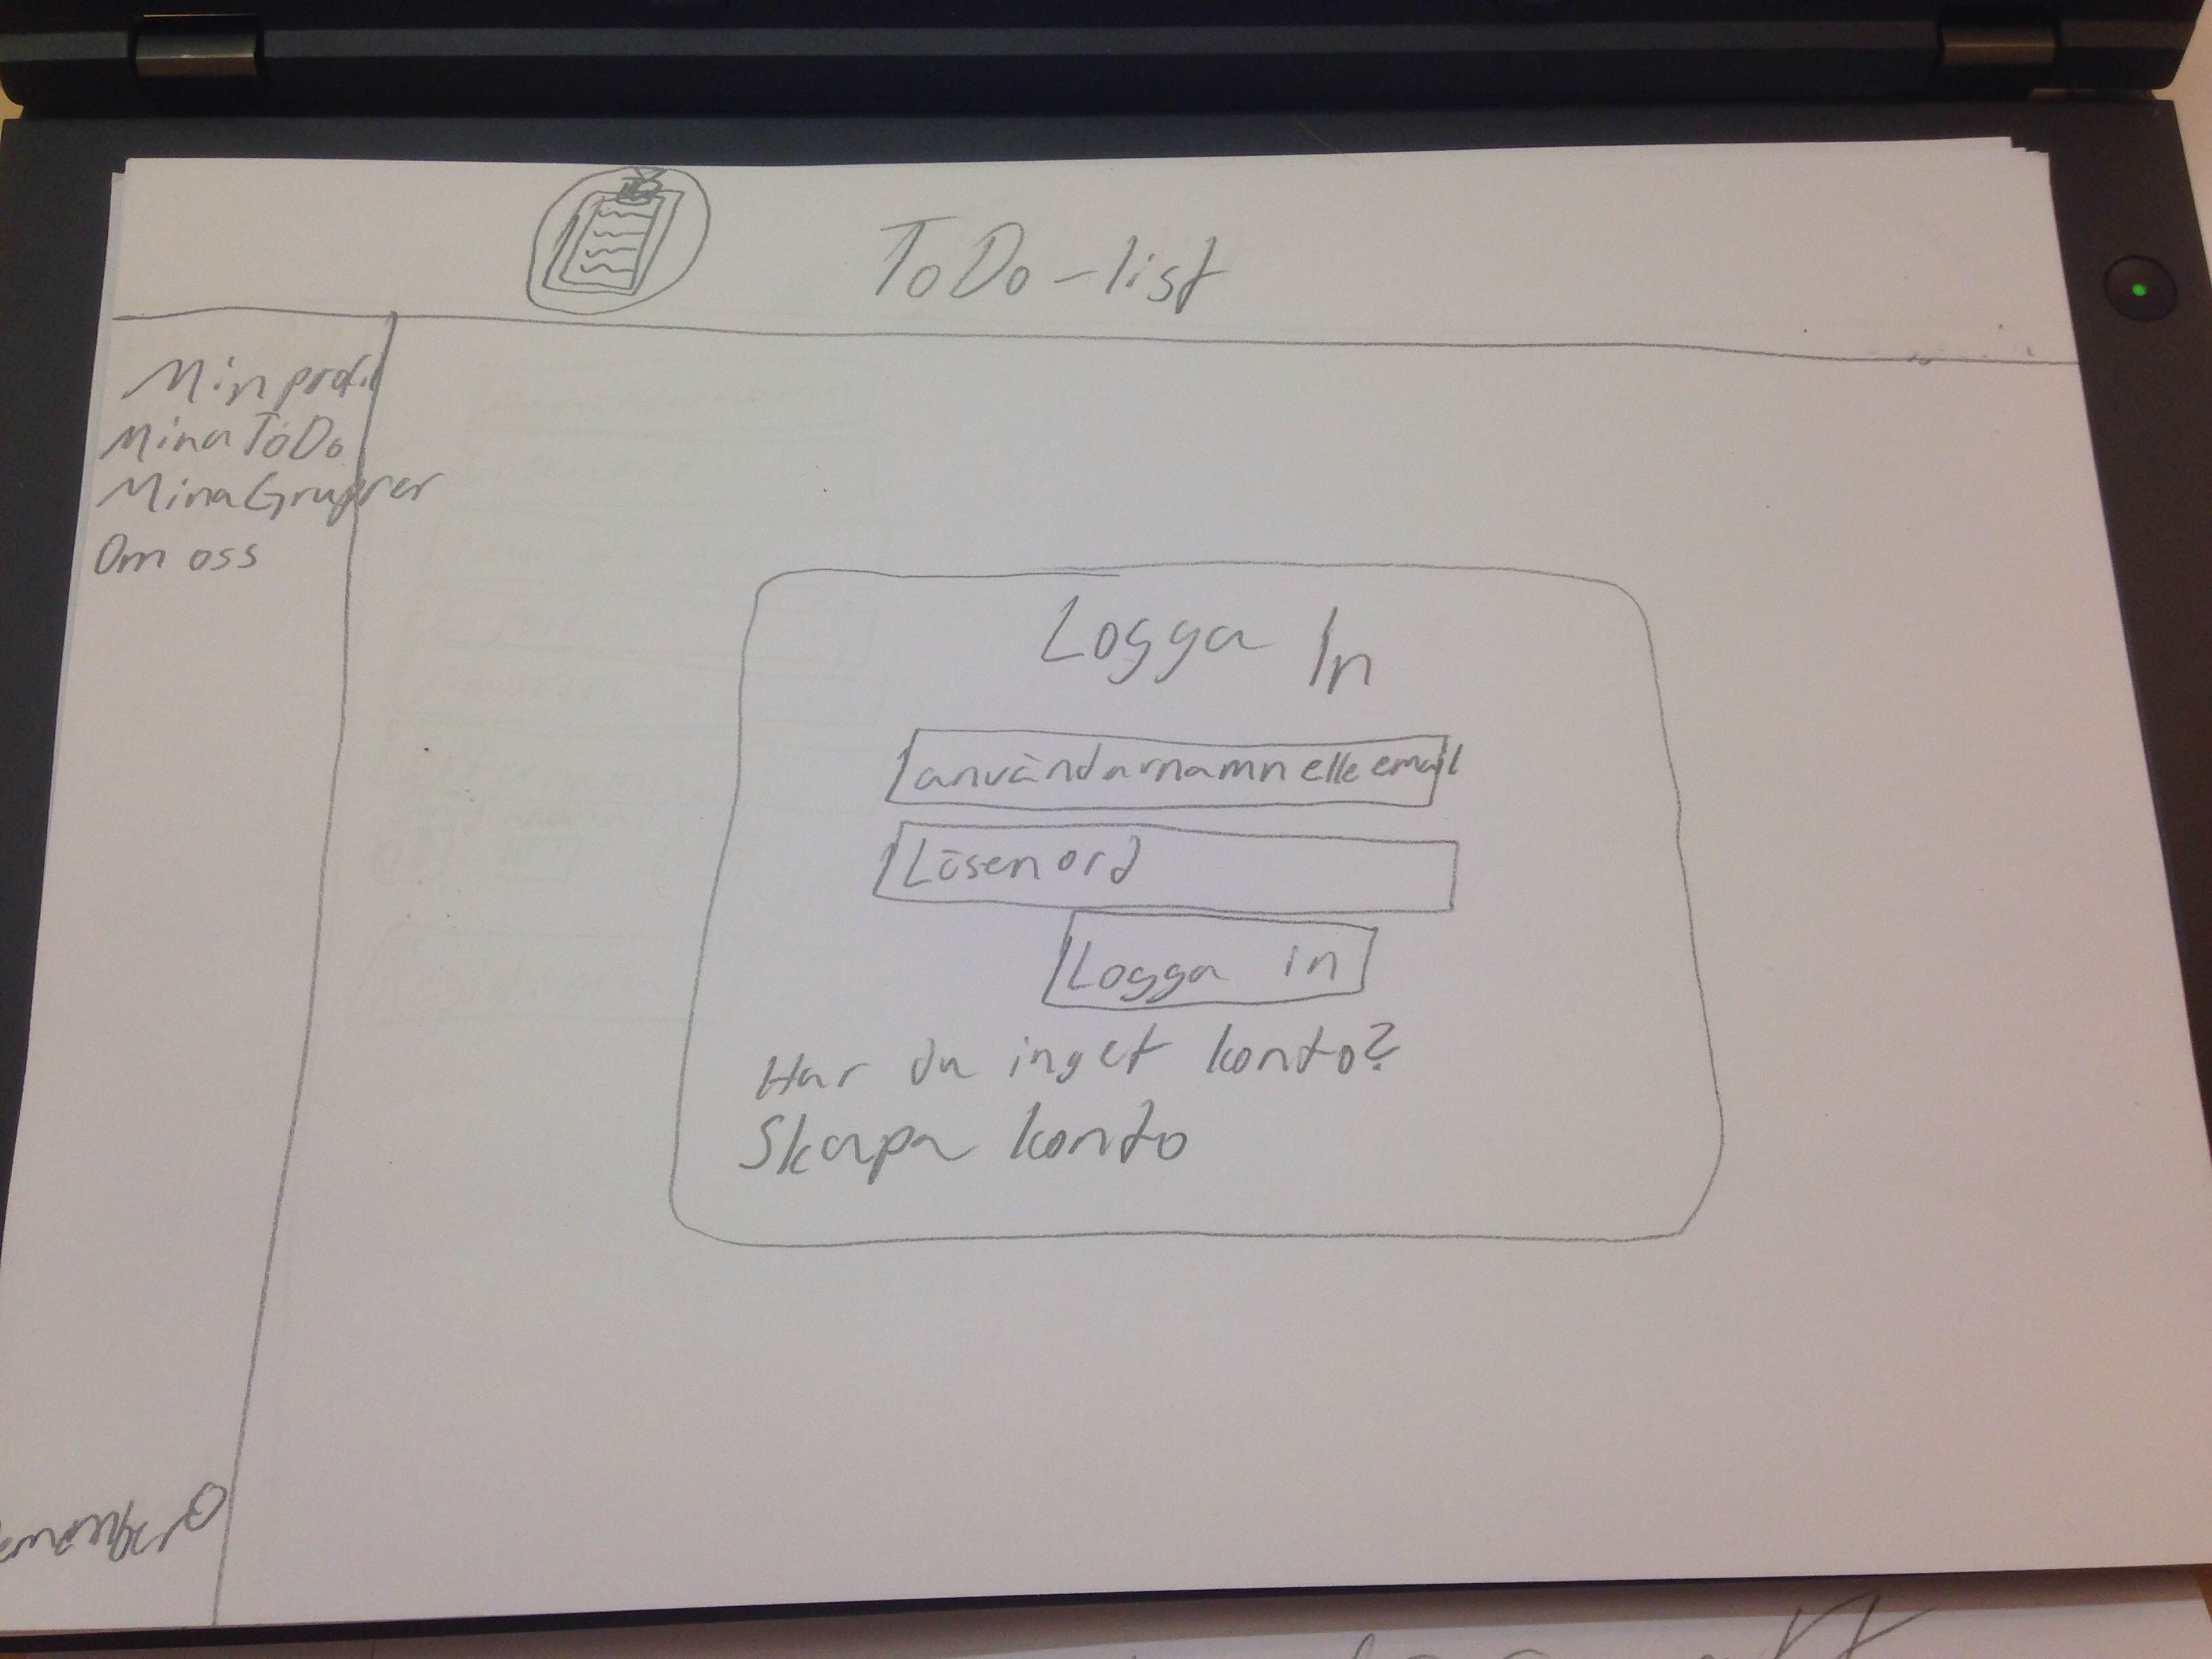 ToDo-list
Min profil
Mina ToDo
Mina Grupper
Om oss
Logga In
användarnamn elle email
Lösenord
Logga in
Har du inget konto?
Skapa konto